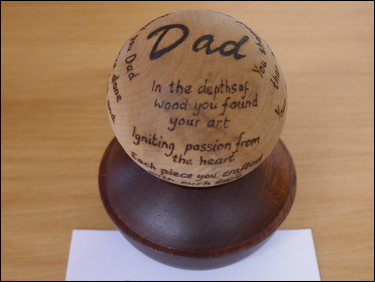 Dad
In the depths of
wood you found
your art
Igniting passion from
the heart
Each piece you crafted
with such care
you Dad
done
You sha
tha